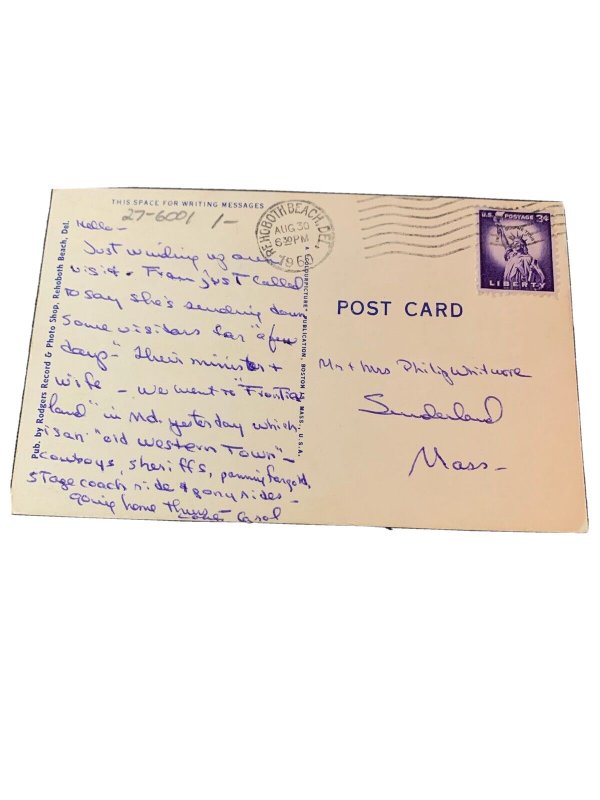 THIS SPACE FOR WRITING MESSAGES
27-6001 1-
Hello -
Just winding up our
visit - Fran just called
to say she's sending down
some visitors for "a few
days" - their minister +
wife - We went to "Frontier
land" in Md. yesterday which
is an "old western Town" -
cowboys, sheriffs, panning for gold,
stage coach ride & pony rides -
going home Thurs -
Carol
Pub. by Rodgers Record & Photo Shop, Rehoboth Beach, Del.
PUBLICATION, BOSTON 15, MASS., U.S.A.
REHOBOTH BEACH, DEL.
AUG 30
6 30 PM
1960
U.S. POSTAGE 3¢
LIBERTY
POST CARD
Mr + Mrs Philip Whitmore
Sunderland
Mass -